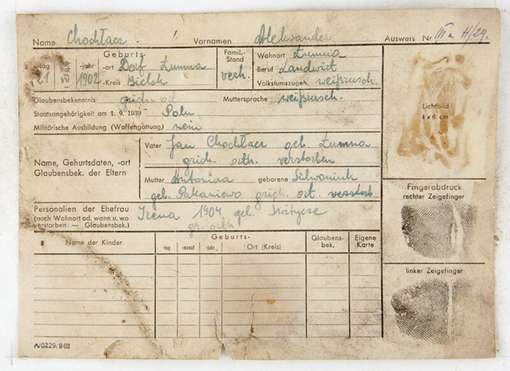 Name Chochłacz Vornamen Aleksander Ausweis Nr. III a H/29.
Geburts- Famil.- Stand Wohnort Łumna
tag 21 jahr 1902 -ort Dorf Łumna verh. Beruf Landwirt
-Kreis Bielsk Volkstumszugeh. weißrusch.
Glaubensbekenntnis griech. Muttersprache weißrusch.
Staatsangehörigkeit am 1. 9. 1939 Poln
Militärische Ausbildung (Waffengattung) nein
Lichtbild
4 x 6 cm
Name, Geburtsdaten, -ort
Glaubensbek. der Eltern
Vater Jan Chochłacz geb. Łumna
griech. orth. verstorben
Mutter Antonina geborene
geb. griech. ort. verstorb.
Personalien der Ehefrau
(auch Wohnort od. wann u. wo
verstorben — Glaubensbek.)
Irena 1904 geb.
gr. orth.
Fingerabdruck
rechter Zeigefinger
linker Zeigefinger
Name der Kinder Geburts- Glaubens-
bek. Eigene
Karte
tag mon. jahr Ort (Kreis)